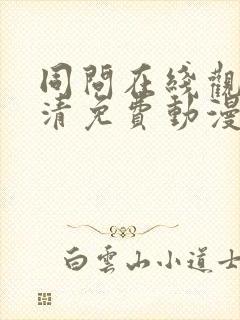 同問在綫觀
清免費動漫
白雲山小道士